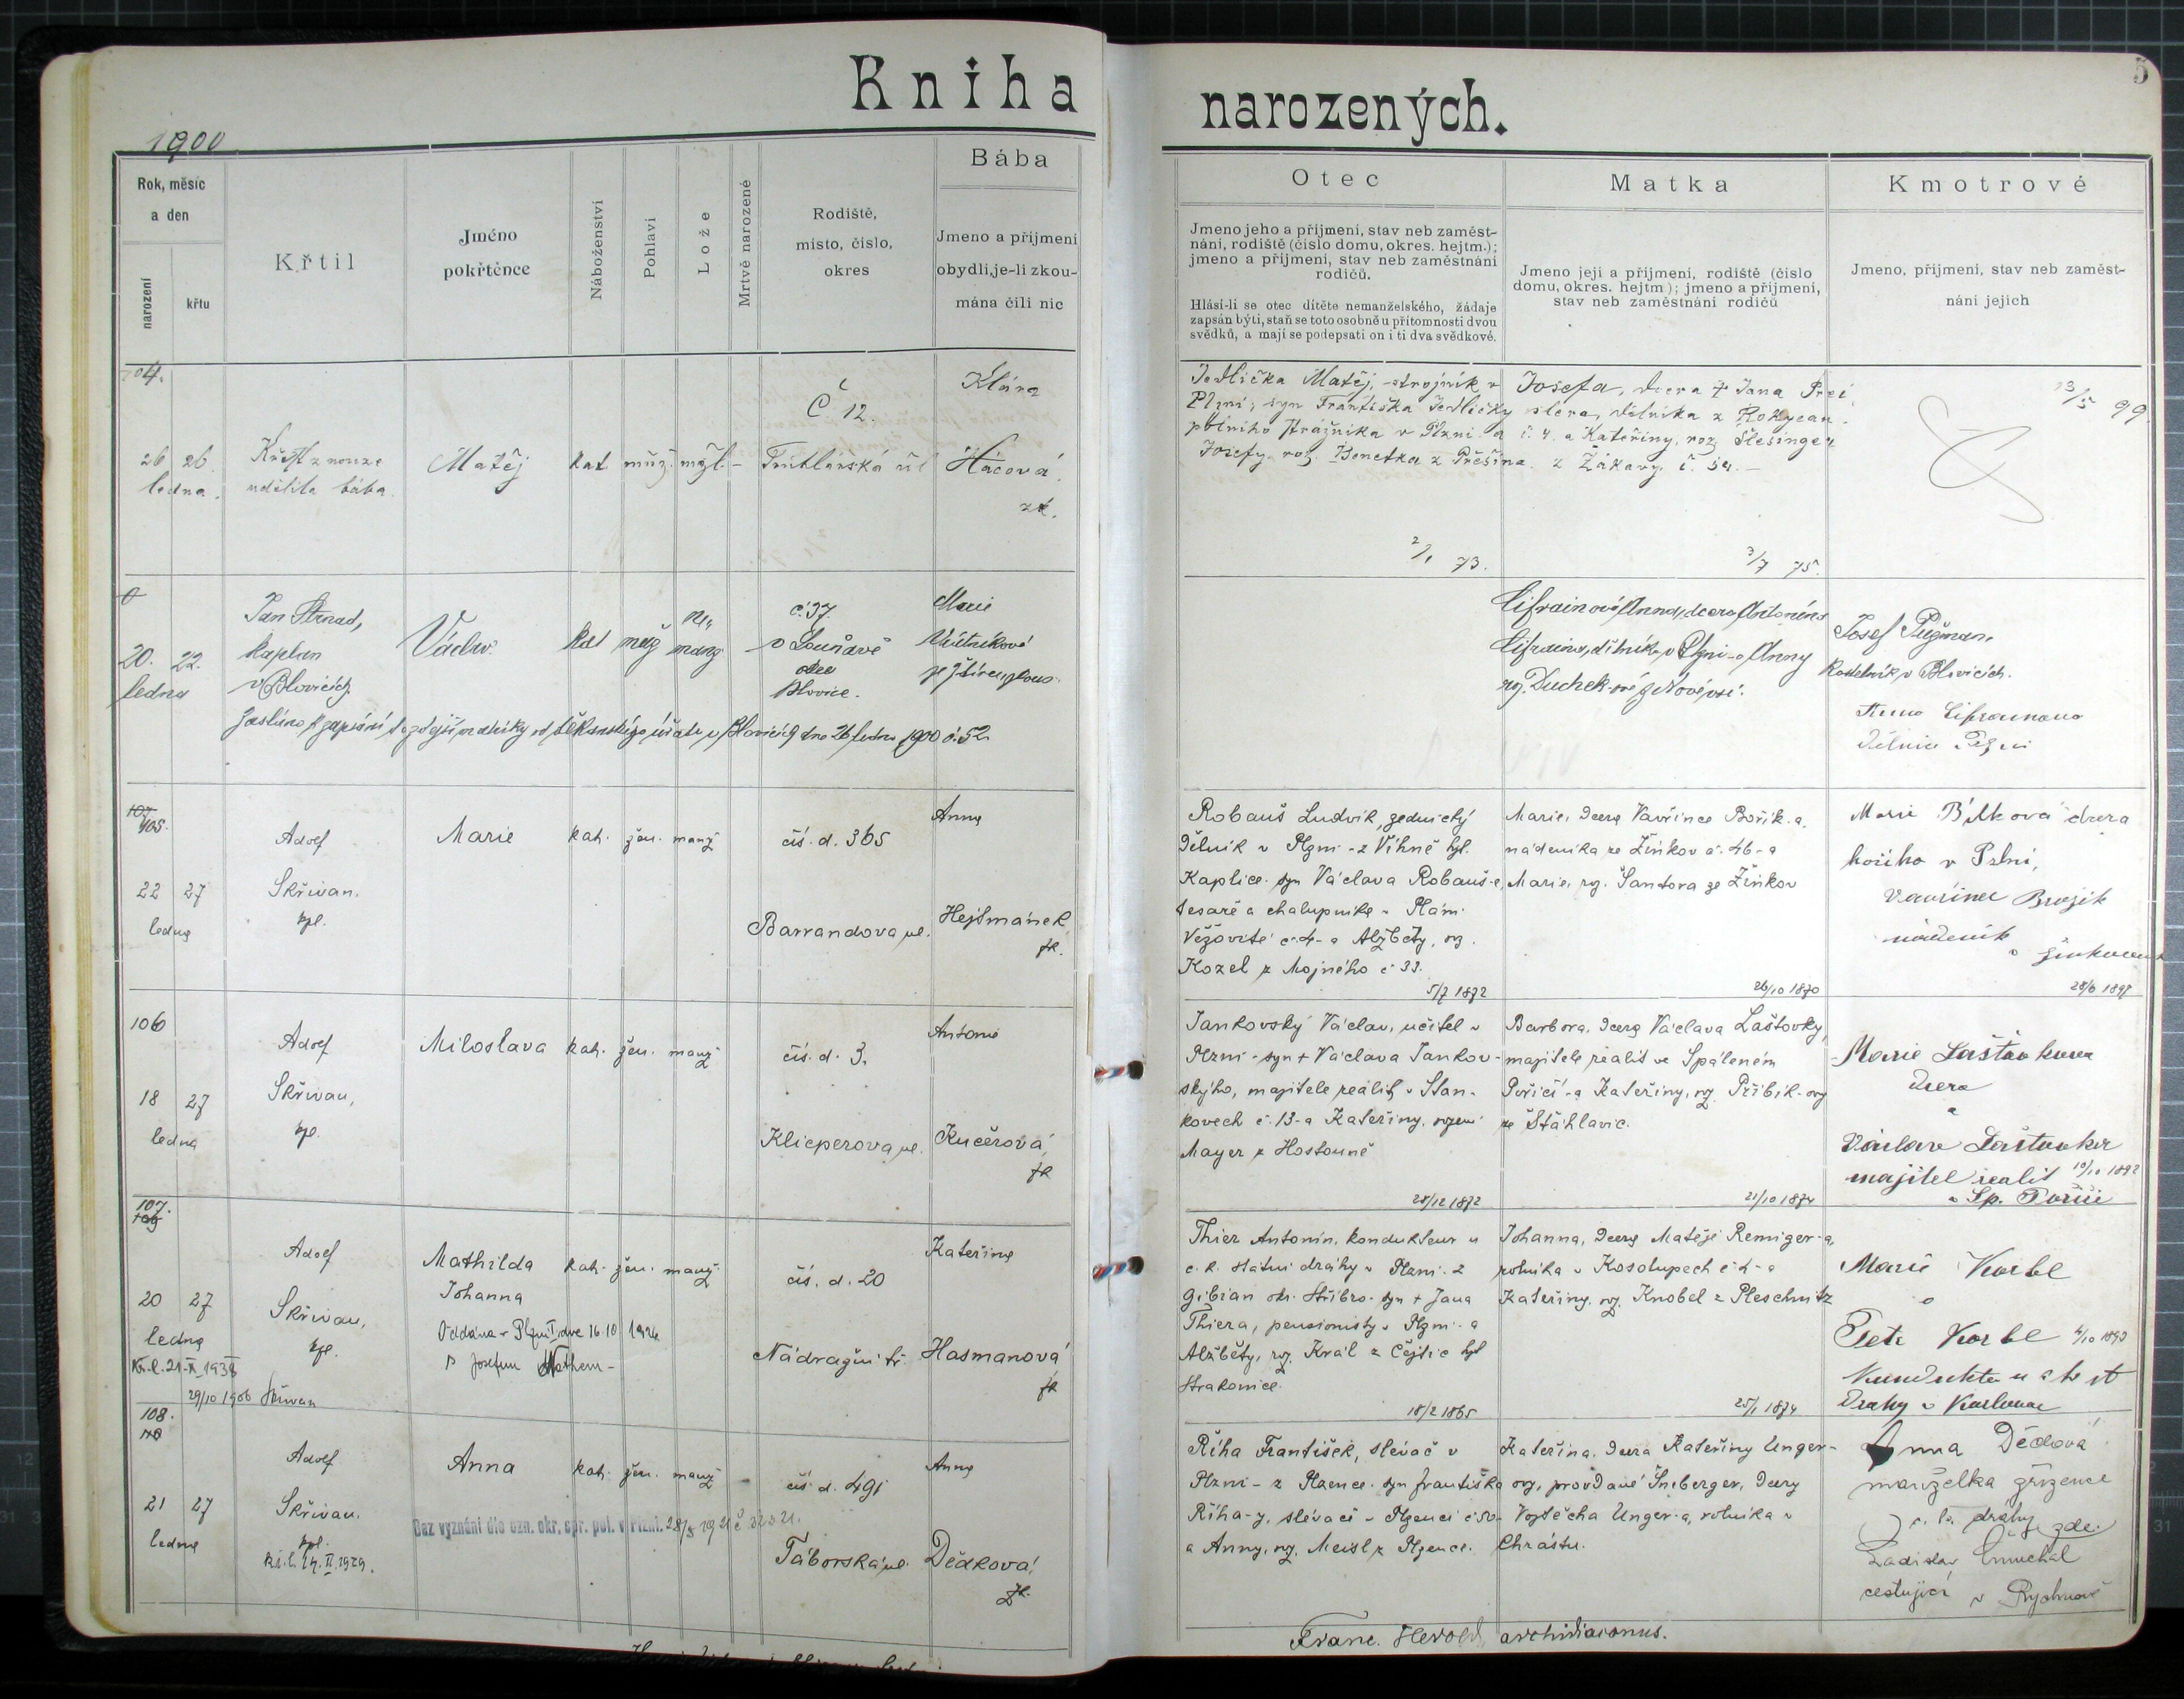 Kniha narozených.
5
1900
Rok, měsíc
a den
narození
křtu
Křtil
Jméno
pokřtěnce
Náboženství
Pohlaví
Lože
Mrtvě narozené
Rodiště,
místo, číslo,
okres
Bába
Jmeno a příjmení
obydlí, je-li zkou-
mána čili nic
Otec
Jmeno jeho a příjmení, stav neb zaměst-
nání, rodiště (číslo domu, okres. hejtm.);
jmeno a příjmení, stav neb zaměstnání
rodičů.
Hlásí-li se otec dítěte nemanželského, žádaje
zapsán býti, staň se toto osobně u přítomnosti dvou
svědků, a mají se podepsati on i ti dva svědkové.
Matka
Jmeno její a příjmení, rodiště (číslo
domu, okres. hejtm); jmeno a příjmení,
stav neb zaměstnání rodičů
Kmotrové
Jmeno, příjmení, stav neb zaměst-
nání jejich
104.
26 26
ledna.
Křest z nouze
udělila bába.
Matěj
kat muž. mžl. –
Č 12.
Truhlářská ul
Klára
Háčová
zk.
Jedlička Matěj, strojník v
Plzni; syn Františka Jedličky
polního strážníka v Plzni a
Josefy roz. Benetka z Přešína.
2/1 73.
Josefa, dcera † Jana
slera, dělníka z Rokycan
č. 4. a Kateřiny, roz. Šlesinger
z Žákavy č. 54. –
3/7 75.
13/5 99
0
20. 22.
ledna
Jan Strnad,
kaplan
v Blovicích
Václav.
kat muž
ne
manž
č. 37.
v Louňavě
okres
Blovice.
Marie
ze Ždírce, zkouš.
Cifrainová Anna, dcera Antonína
Cifraina, dělníka v Plzni a Anny
roz. Duchek-ové z Nové vsi.
Josef
v Blovicích.
Anna Cifrainova
dělnice Plzni
Zasláno k zapsání do zdejší matriky od děkanského úřadu v Blovicích dne 26 ledna 1900 č. 52.
107
105.
22 27
ledna
Adolf
Skřivan.
kpl.
Marie
kat. žen. manž
čís. d. 365
Barrandova ul.
Anna
Hejšmánek
zk.
Robauš Ludvík, zednický
dělník v Plzni - z Víhně hjt.
Kaplice. syn Václava Robauš-e,
tesaře a chalupníka v
č. 4 - a Alžběty, roz.
Kozel z Mojného č 33.
5/7 1872
Marie, dcera Vavřince Bořík-a,
nádeníka ze Žinkov č. 46 - a
Marie, roz. Šantora ze Žinkov
26/10 1870
Marie Bílková dcera
horího v Plzni,
Vavřinec Brojík
nádeník
v
28/6 1897
106
18 27
ledna
Adolf
Skřivan,
kpl.
Miloslava
kat. žen. manž
čís. d. 3.
Klicperova ul.
Antonie
Kučerová
zk
Jankovský Václav, učitel v
Plzni - syn † Václava Jankov-
ského, majitele realit v Stan-
kovech č. 13 - a Kateřiny, rozen
Mayer z Hostouně
28/12 1872
Barbora, dcera Václava Laštovky,
majitele realit ve Spáleném
Poříčí - a Kateřiny, roz. Přibík-ovy
ze Štáhlavic.
21/10 1874
Marie Laštovkova
dcera
a
Václav Laštovka
majitel realit 10/10 1892
v Sp. Poříčí
107.
109
20 27
ledna
Kř. l. 21. II. 1938
29/10 1906 Skřivan
Adolf
Skřivan,
kpl.
Mathilda
Johanna
Oddána v Plzni I, dne 16. 10 1926
s Josefem
kat. žen. manž.
čís. d. 20
Nádražní tř.
Kateřina
Hasmanová
zk
Thier Antonín, kondukteur u
c. k. státní dráhy v Plzni. z
Gibian okr. Stříbro. syn † Jana
Thiera, pensionisty v Plzni - a
Alžběty, roz. Král z Čejtic hjt
Strakonice.
18/2 1865
Johanna, dcera Matěje Remiger-a,
rolníka v Kosolupech č. 4 - a
Kateřiny, roz. Knobel z Pleschnitz
25/1 1874
Marie Korbl
a
Petr Korbl 4/10 1893
Kondukter
dráhy v
108.
110
21 27
ledna
Adolf
Skřivan.
kpl.
Kř. l. 14. II. 1929.
Anna
kat. žen. manž -
Bez vyznání dle ozn. okr. spr. pol. v Plzni. 28/5 1921 č. 3253 21.
čís. d. 491
Táborská ul.
Anna
Dědková,
zk.
Říha František, slévač v
Plzni - z Plzence. syn Františka
Říha-y, slévače v Plzenci č 50 -
a Anny, roz. Meisl z Plzence.
Kateřina, dcera Kateřiny Unger-
ovy, provdané Šneberger, dcery
Vojtěcha Unger-a, rolníka v
Chrástu.
Anna Dědová
manželka zřízence
c. k. dráhy zde.
Ladislav
cestující v Rychnově
Franc. Herold, archidiaconus.